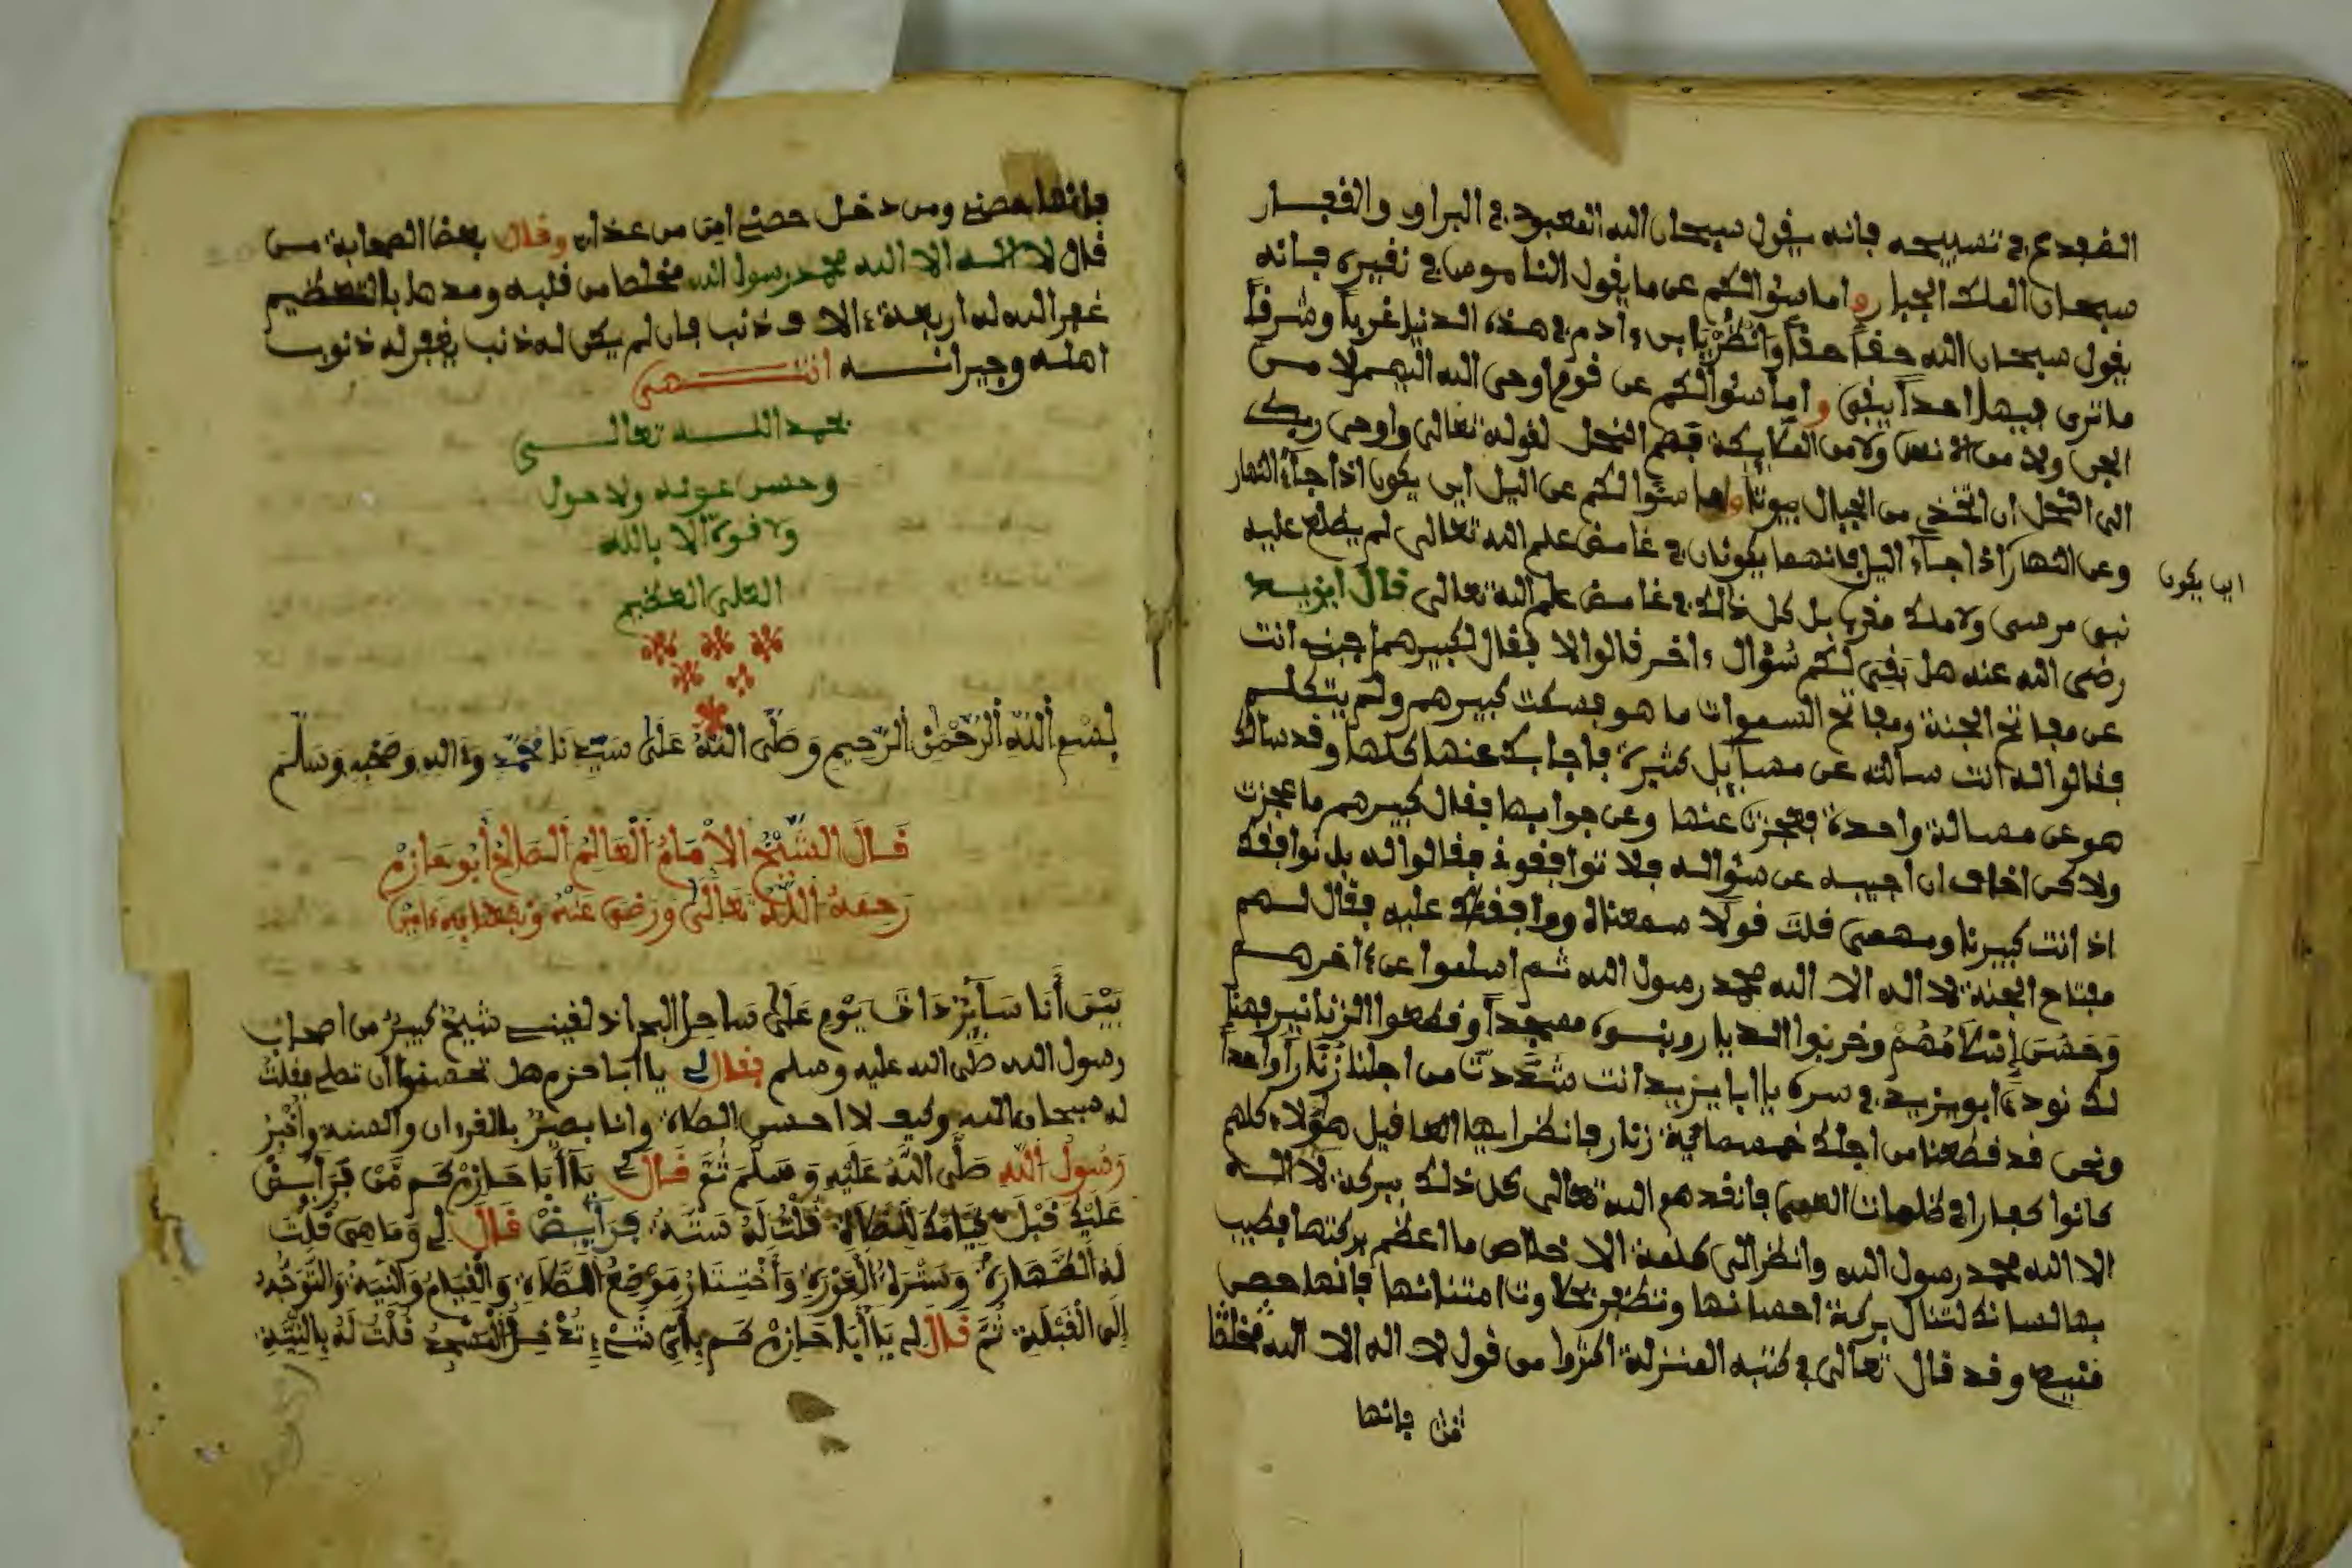 الضفدع في تسبيحه فانه يقول سبحان الله المعبود في البراري والقفار
سبحان الملك الجبار و اما سؤالكم عن ما يقول الناموس في نفيره فانه
يقول سبحان الله حقاً حقاً وانظر يا بن ءادم في هذه الدنيا غرباً وشرفاً
ما ترى فيها احداً يبقى و اما سؤالكم عن قوم اوحى الله اليهم لا من
الجن ولا من الانس ولا من الملايكة فهم النحل لقوله تعالى واوحى ربك
الى النحل ان اتخذي من الجبال بيوتا واما سؤالكم عن اليل اين يكون اذا جآء النهار
وعن النهار اذا جآء اليل فانهما يكونان في غامض علم الله تعالى لم يطلع عليه
اين يكون
نبي مرسى ولا ملك مقرب بل كل ذلك في غامض علم الله تعالى قال ابو يزيد
رضي الله عنه هل بقي لكم سؤال ءاخر قالوا لا فقال لكبيرهم اجبني انت
عن مفاتح الجنة ومفاتح السموات ما هو فسكت كبيرهم ولم يتكلم
فقالوا له انت سالته عن مسآيل كثيرة فاجابك عنها كلها وقد سالك
هو عن مسالة واحدة فعجزت عنها وعن جوابها فقال كبيرهم ما عجزت
ولاكن اخاف ان اجيبه عن سؤاله فلا توافقوني فقالوا له بل نوافقك
اذ انت كبيرنا ومهمى قلت قولا سمعناه ووافقناك عليه فقال لهم
مفتاح الجنة لا اله الا الله محمد رسول الله ثم اسلموا عن ءاخرهم
وحسن إسلامهم وخربوا الديار وبنوه مسجداً وقطعوا الزنانير فهنا
لك نودي ابو يزيد في سره يا ابا يزيد انت شددت من اجلنا زناراً واحداً
ونحن قد قطعنا من اجلك خمسماية زنار فانظر ايها العاقل هؤلاء كلهم
كانوا كفارا في ظلمات العمى فانقدهم الله تعالى كل ذلك ببركة لا اله
الا الله محمد رسول الله وانظر الى كلمة الاخلاص ما اعظم بركتها فطيب
بها لسانك لتنال بركة احسانها وتظفر بحلاوت امتنانها فانها حصن
منيع وقد قال تعالى في كتبه المنزلة اكثروا من قول لا اله الا الله مخلصا
فانها
فانها حصني ومن دخل حصني امن من عذابي وقال بعض الصحابة من
قال لا اله الا الله محمد رسول الله مخلصا من قلبه ومدها بالتعظيم
غفر الله له اربعة ءالاف ذنب فان لم يكن له ذنب يغفر له ذنوب
اهله وجيرانه انتهى
بحمد الله تعالى
وحسن عونه ولا حول
ولا قوة الا بالله
العلي العظيم
بسم الله الرحمن الرحيم وصلى الله على سيدنا محمد وءاله وصحبه وسلم
قال الشيخ الامام العالم الصالح أبو حازم
رحمه الله تعالى ورضي عنه ونفعنا به ءامين
بين أنا سآير ذات يوم على ساحل البحر اذ لقيني شيخ كبير من اصحاب
رسول الله صلى الله عليه وسلم فقال لي يا أبا حزم هل تحسن أن تصلي فقلت
له سبحان الله وكيف لا احسن الصلاة وانا بصير بالقرءان والسنة
رسول الله صلى الله عليه وسلم ثم قال لي يا أبا حازم كم من فرآيض
عليك قبل قيامك للصلاة قلت له ستة فرآيض قال لي وما هي قلت
له الطهارة وستر العورة وأختيار موضع الصلاة والقيام والنية والتوجه
إلى القبلة ثم قال لي يا أبا حازم كم بأي شيء تدخل المسجد قلت له بالنية